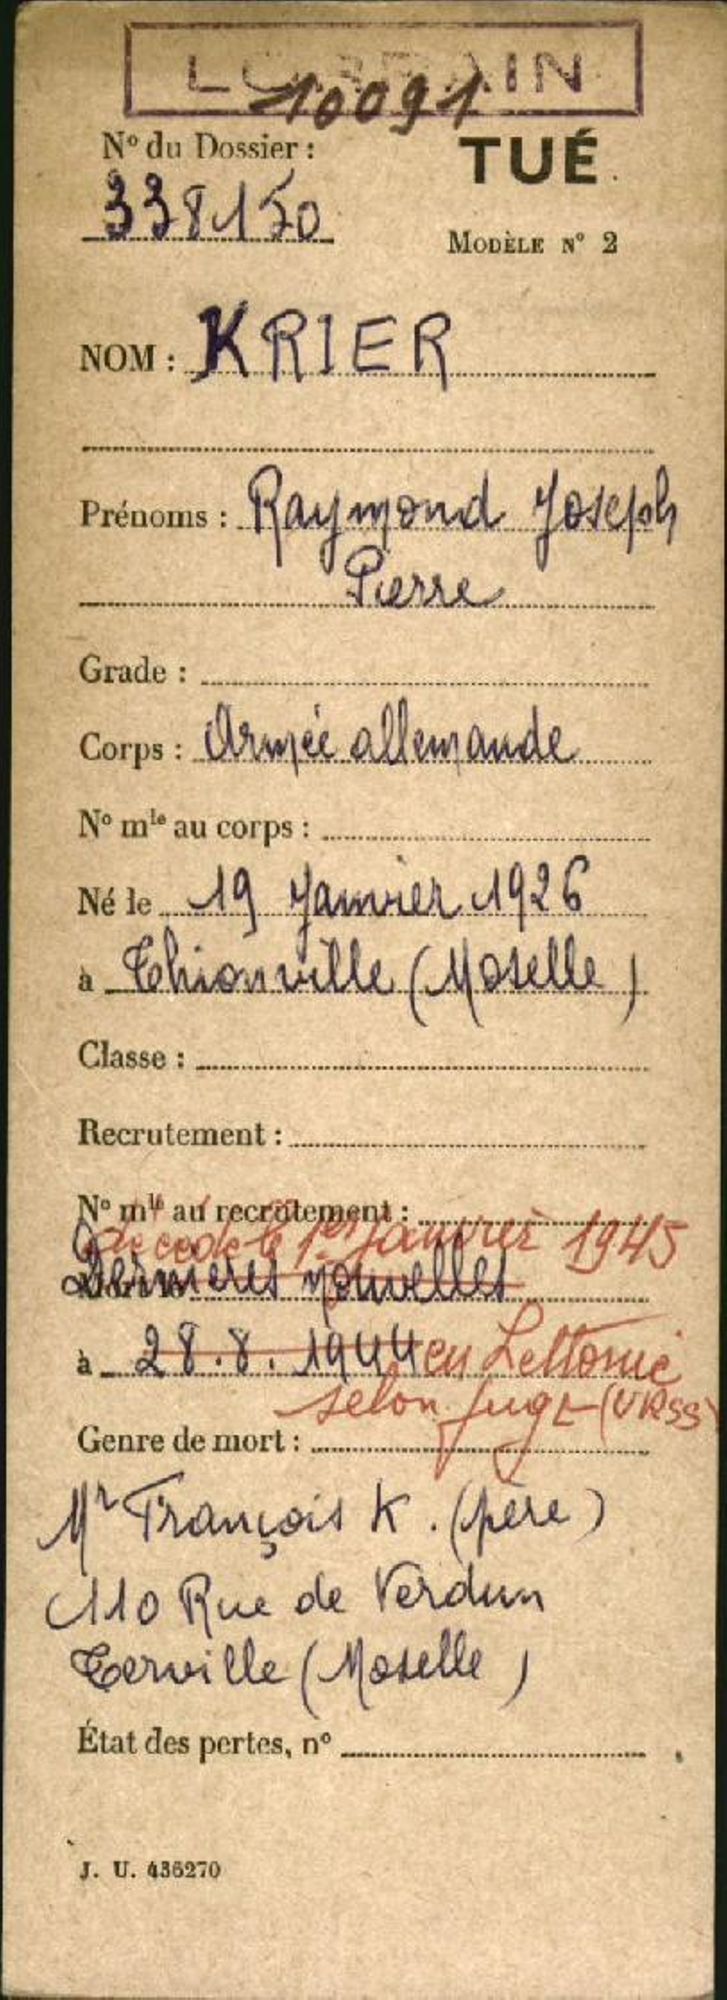 LORRAIN
10091
N° du Dossier :
TUÉ.
338150
MODÈLE N° 2
NOM : KRIER
Prénoms : Raymond Joseph
Pierre
Grade :
Corps : Armée allemande
N° mle au corps :
Né le 19 Janvier 1926
à Thionville (Moselle)
Classe :
Recrutement :
N° mle au recrutement :
décédé le 1er janvier 1945
Dernières nouvelles
à 28.8.1944 en Lettonie
selon jugt (URSS)
Genre de mort :
Mr François K. (père)
110 Rue de Verdun
Terville (Moselle)
État des pertes, n°
J. U. 436270